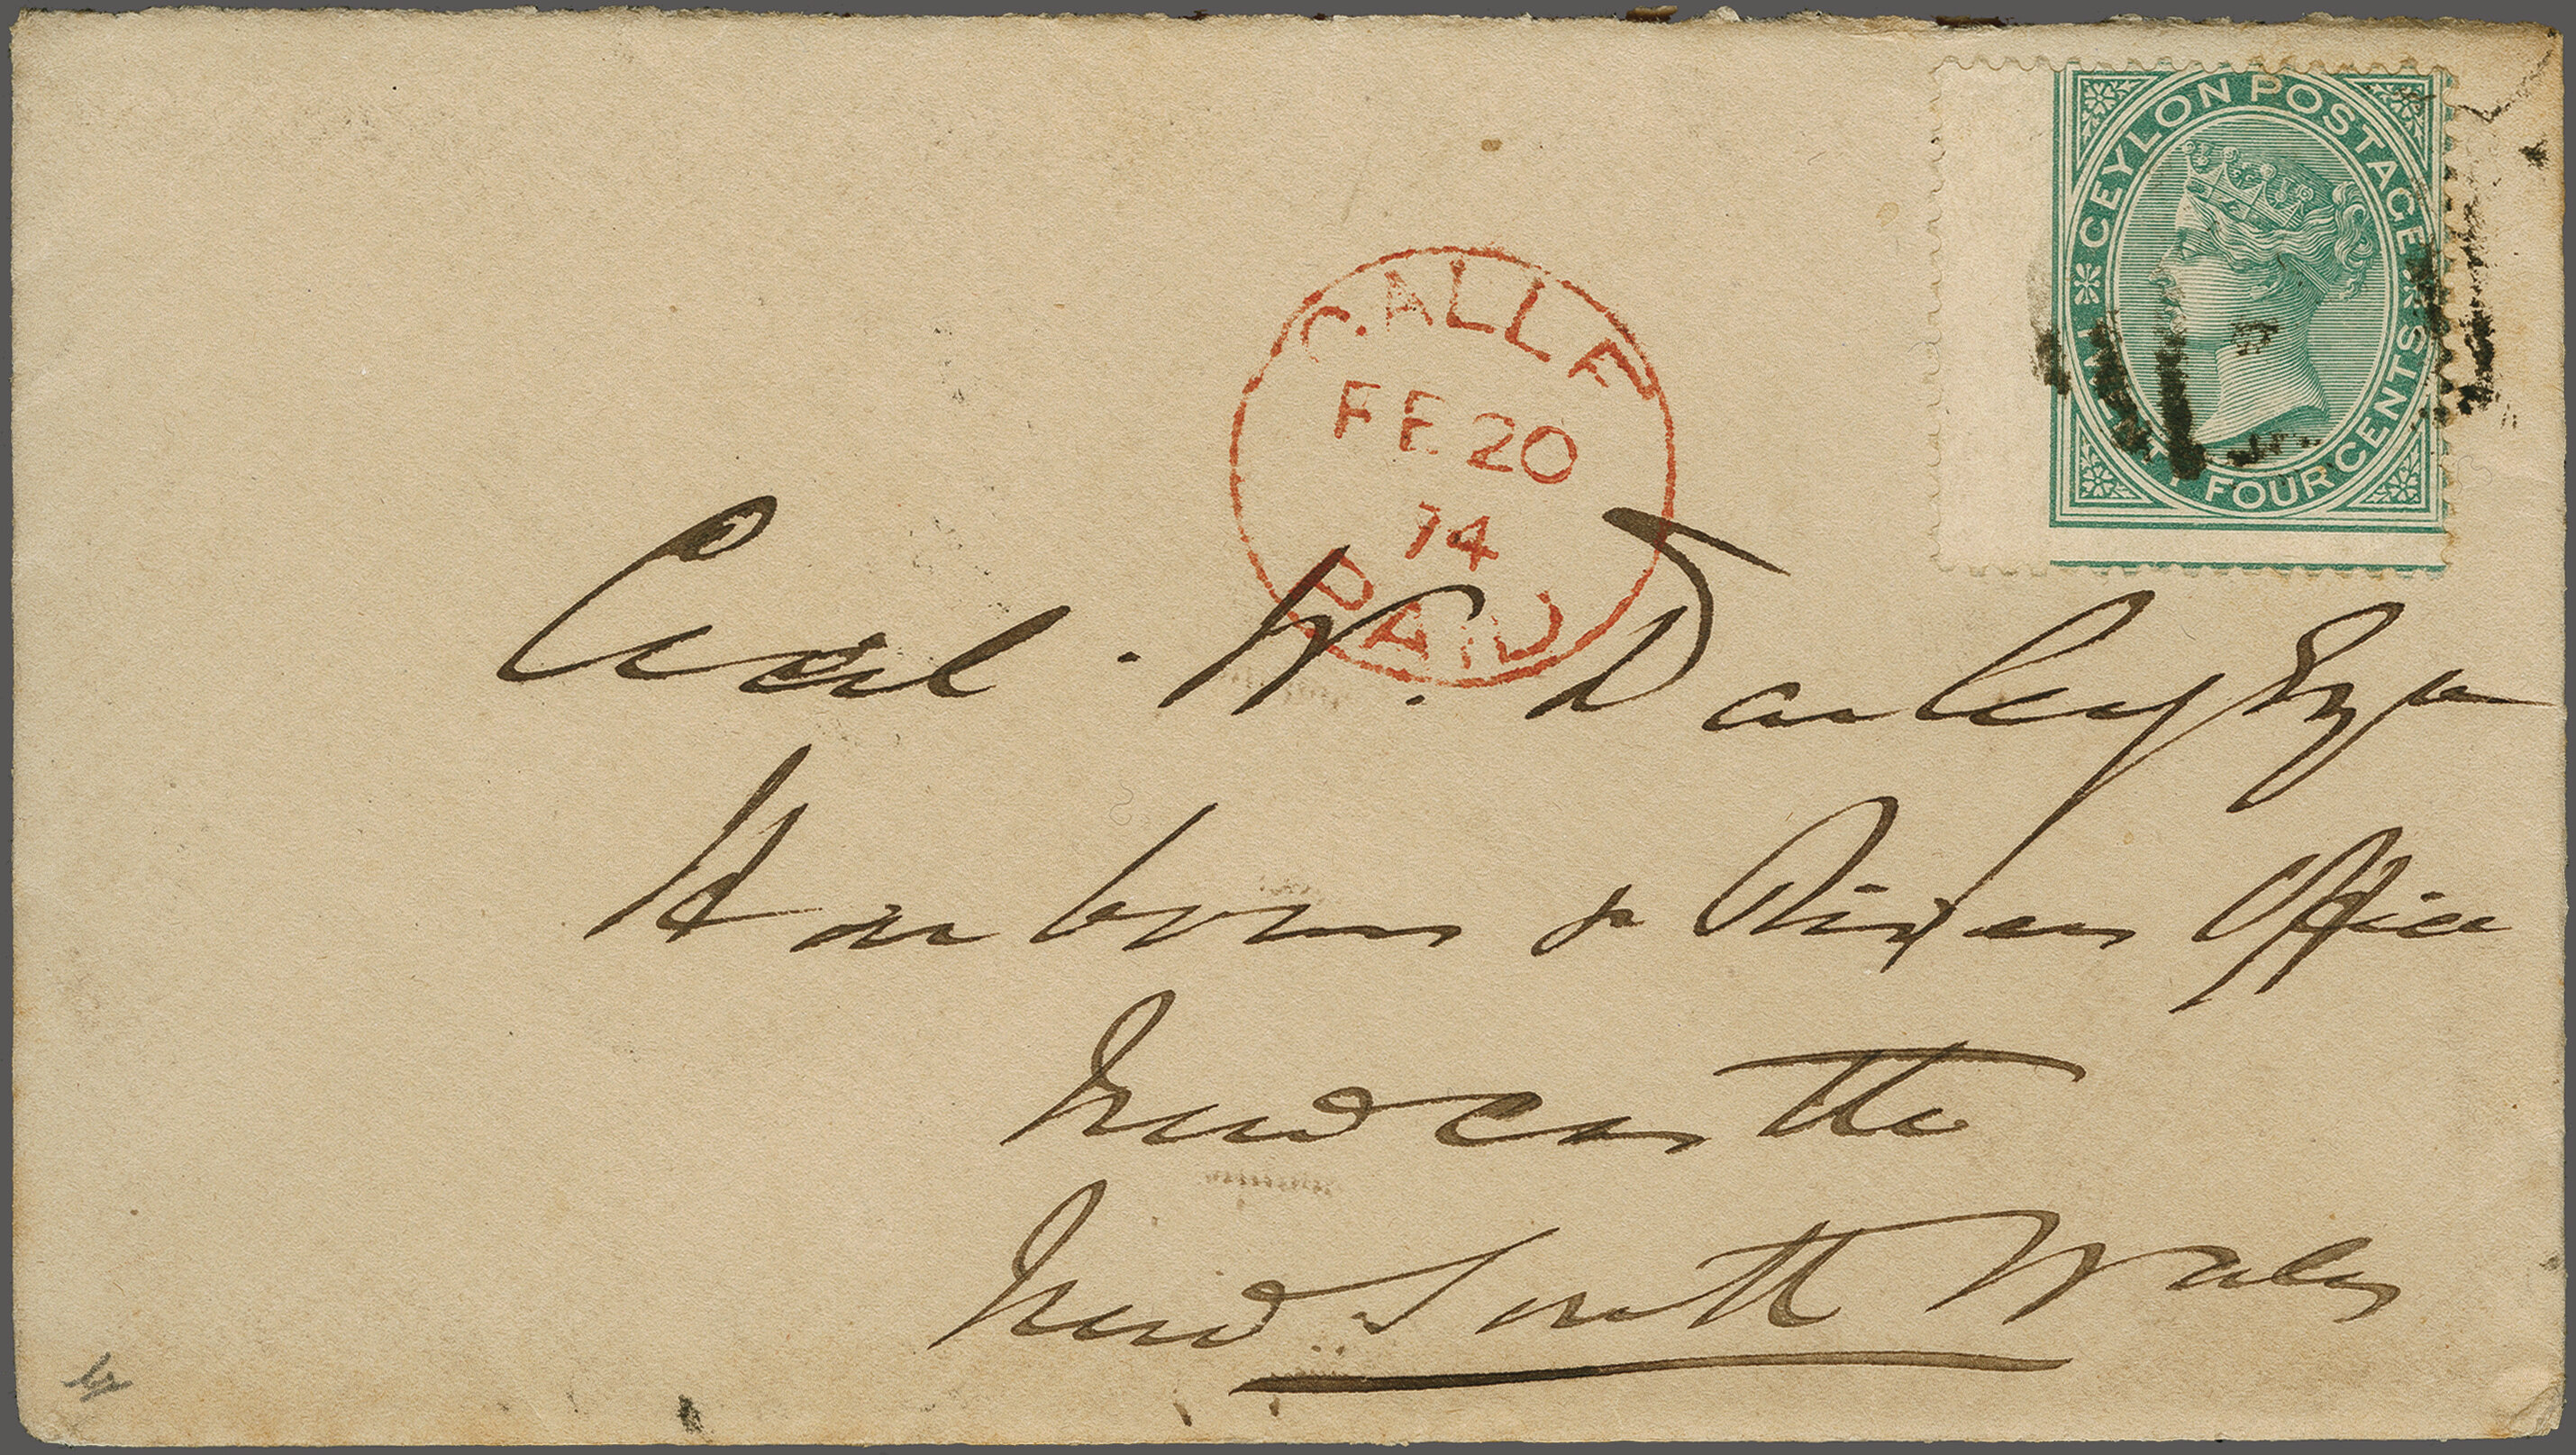 CEYLON POSTAGE
TWENTY FOUR CENTS
GALLE
FE 20
74
PAID
Cecil . W. Darley Esqr
Harbours & Rivers Office
Newcastle
New South Wales